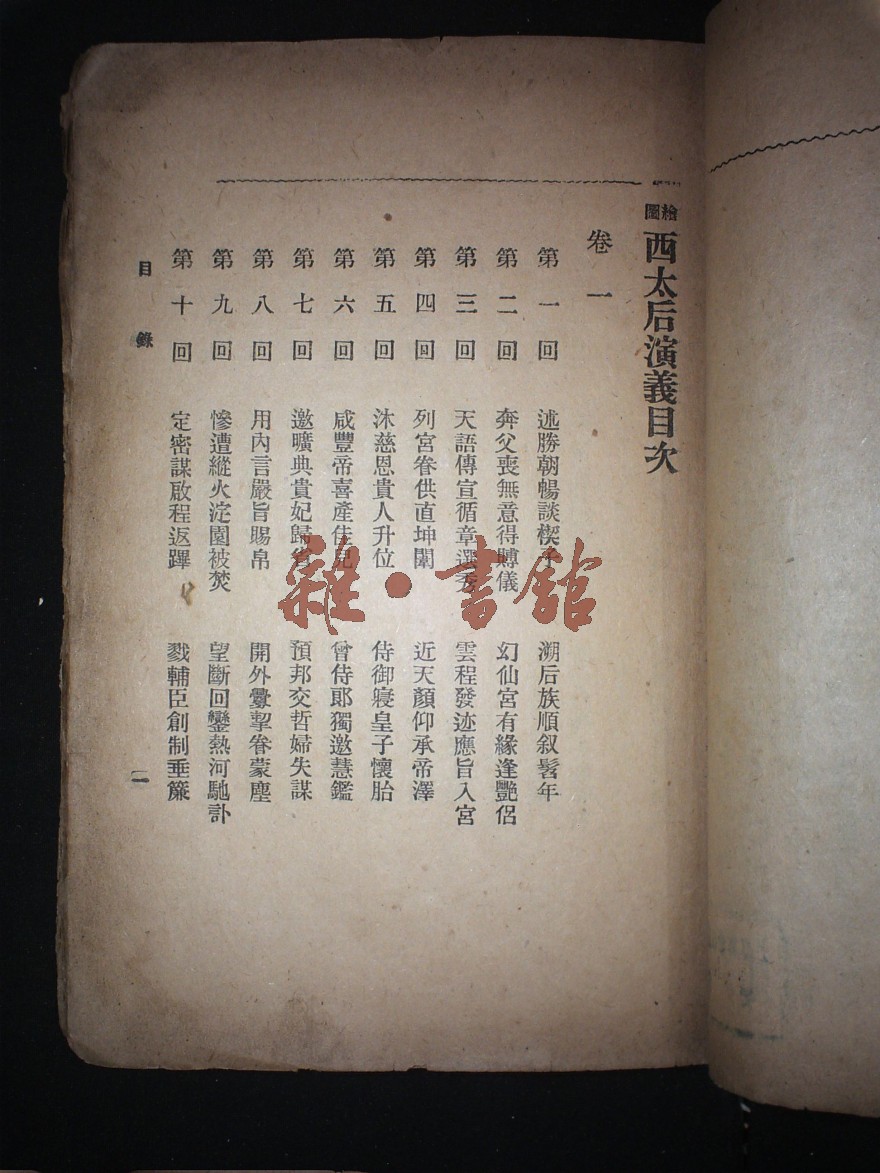 繪圖西太后演義目次
卷一
第一回 述勝朝暢談楔子 溯后族順叙髫年
第二回 奔父喪無意得賻儀 幻仙宮有緣逢艷侶
第三回 天語傳宣循章選秀 雲程發迹應旨入宮
第四回 列宮眷供直坤闈 近天顏仰承帝澤
第五回 沐慈恩貴人升位 侍御寢皇子懷胎
第六回 咸豐帝喜產佳兒 曾侍郎獨邀慧鑑
第七回 邀曠典貴妃歸省 預邦交哲婦失謀
第八回 用內言嚴旨賜帛 開外釁挈眷蒙塵
第九回 慘遭縱火淀園被焚 望斷回鑾熱河馳訃
第十回 定密謀啟程返蹕 戮輔臣創制垂簾
目錄
一
雜·書館